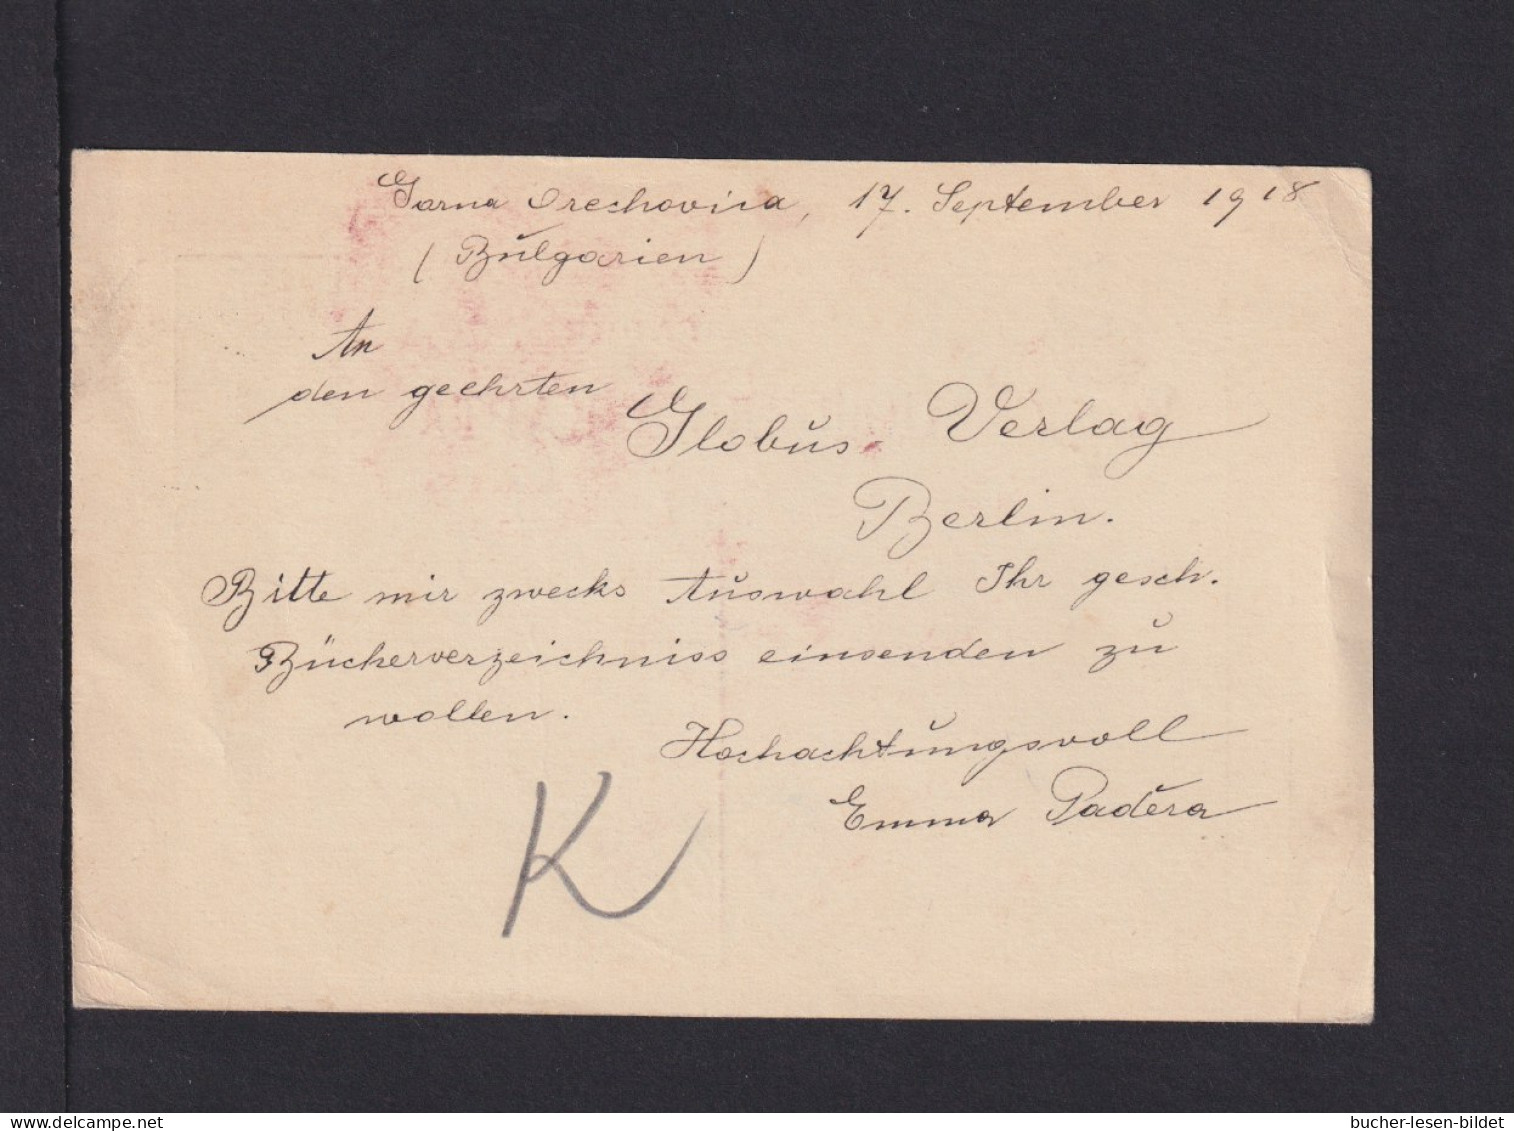 Gorna Orechovica, 17. September 1918
(Bŭlgarien)
An
den geehrten
Globŭs-Verlag
Berlin.
Bitte mir zwecks Aŭswahl Ihr gesch.
Bücherverzeichniss einsenden zŭ
wollen.
Hochachtŭngsvoll
Emma Paděra
K
© delcampe.net
bucher-lesen-bildet